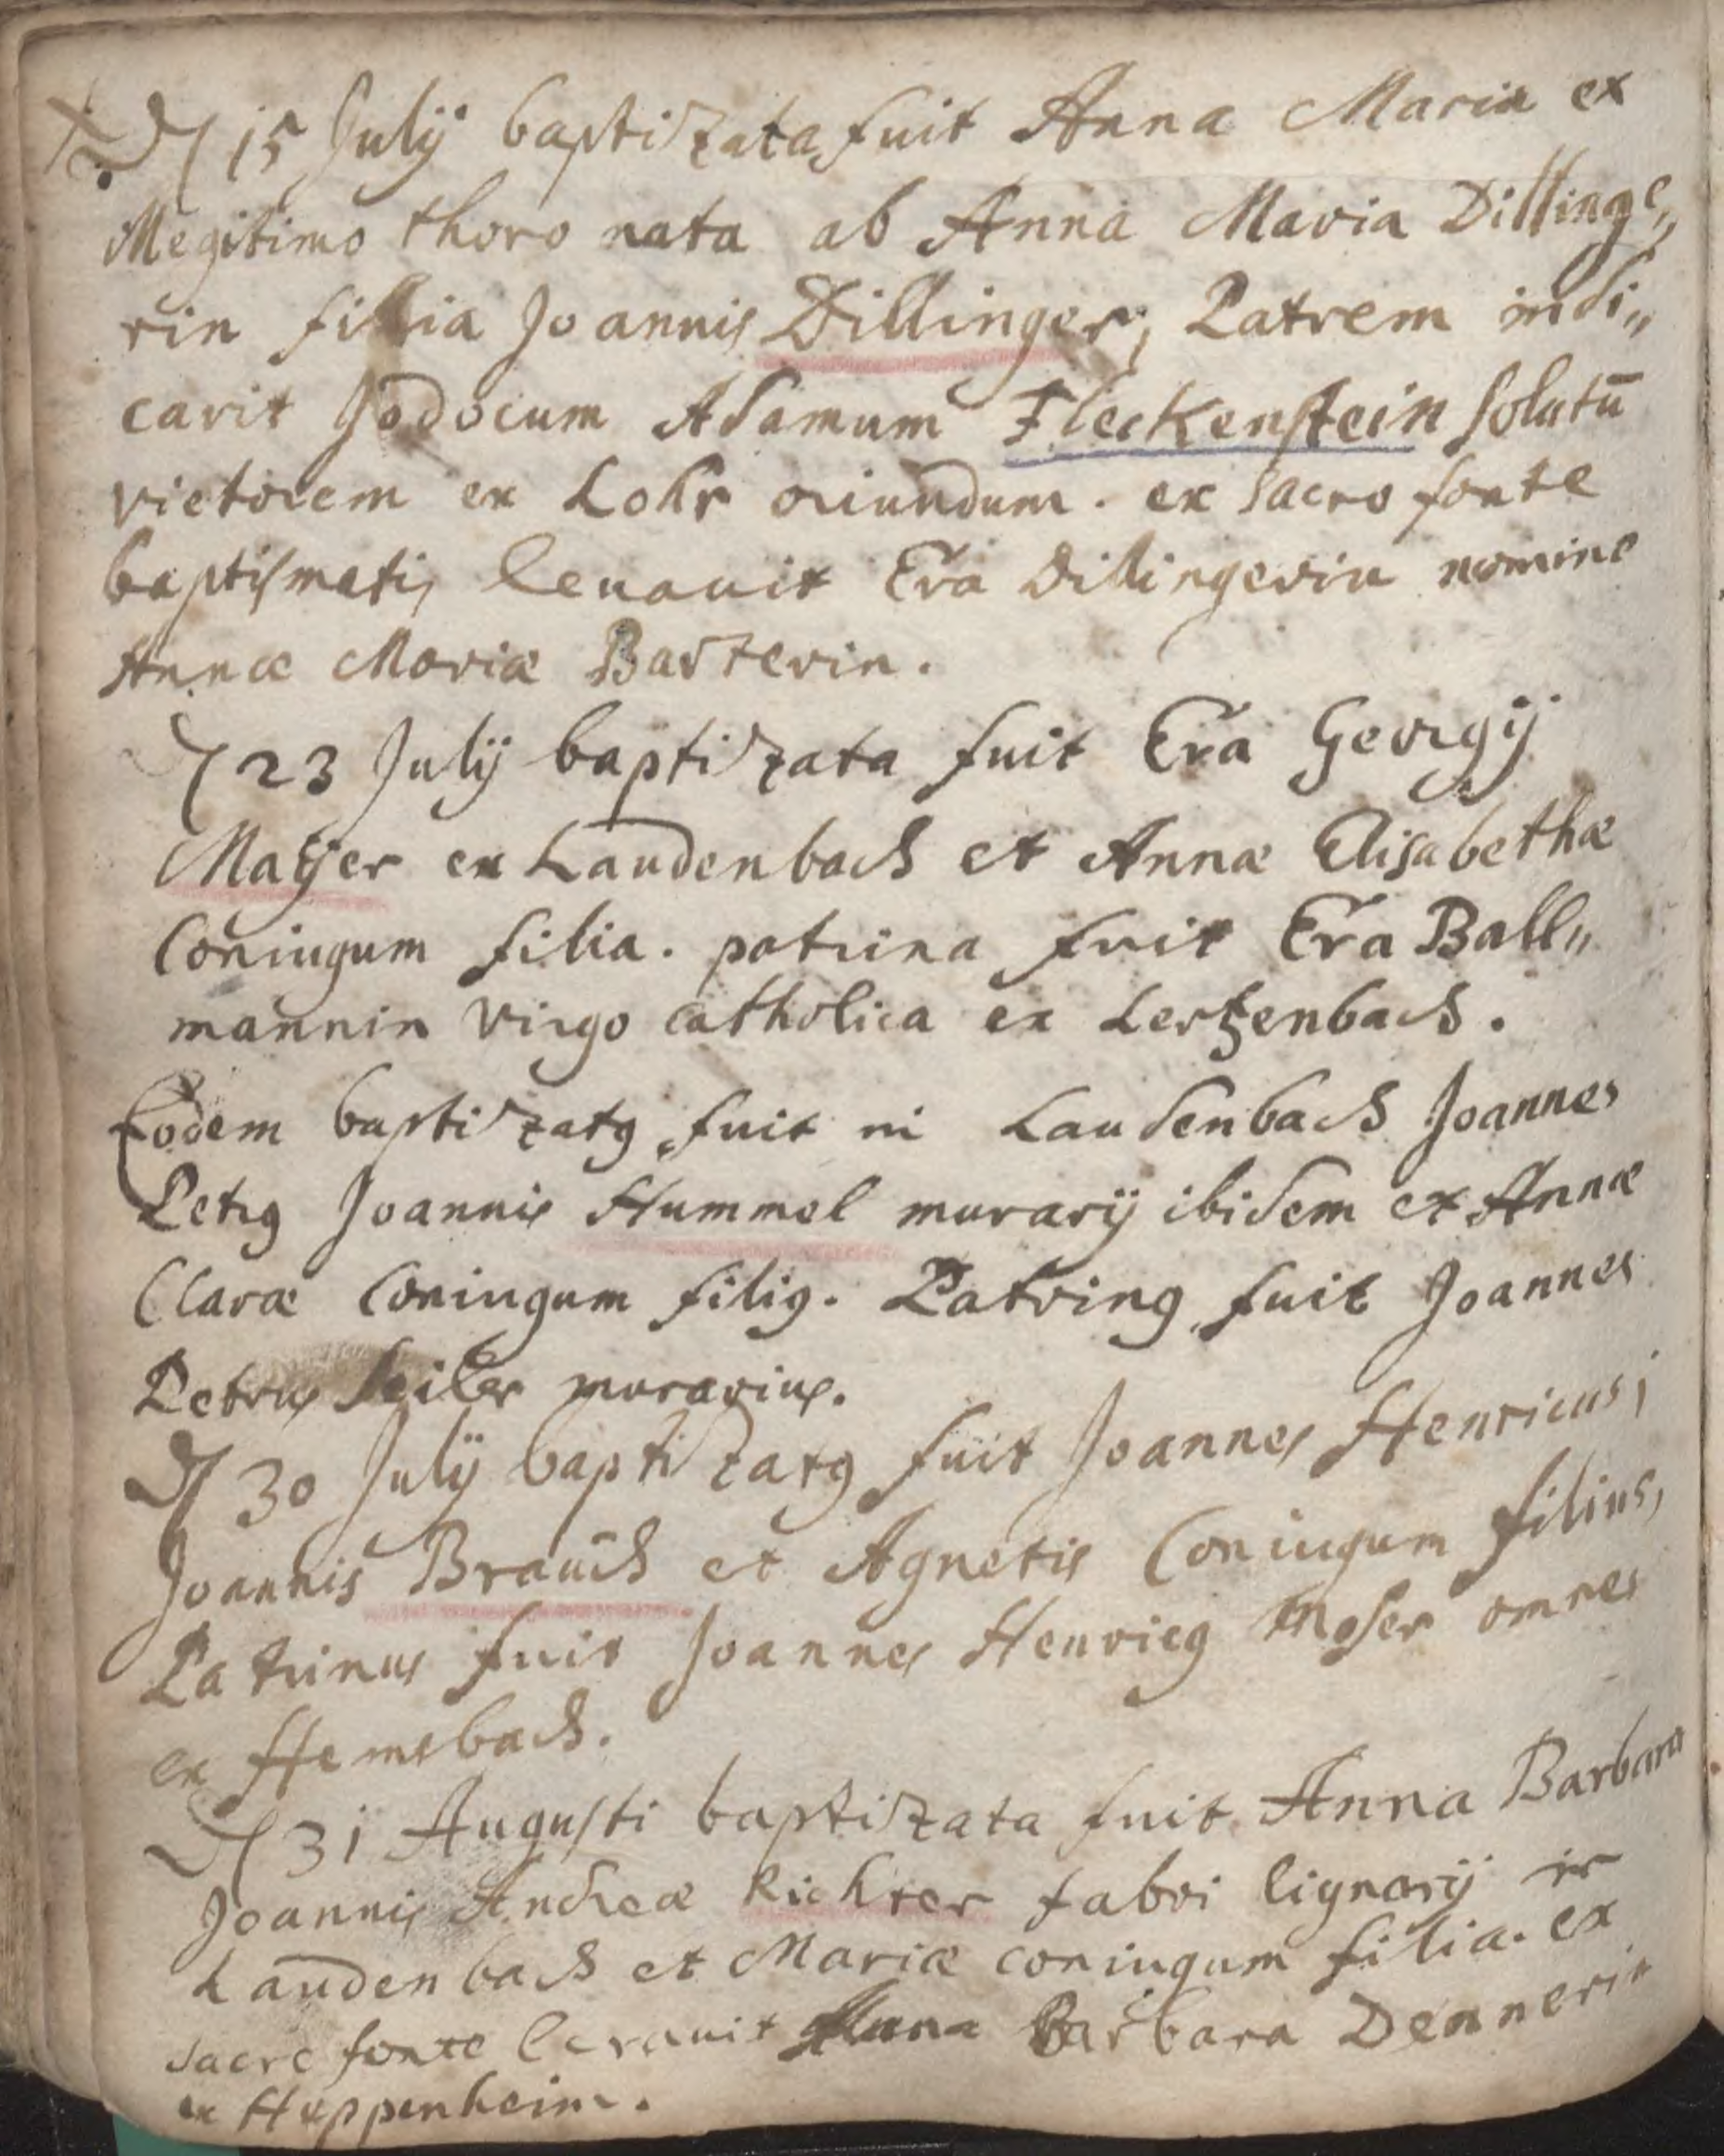 D 15 Julij baptizata fuit Anna Maria ex
illegitimo thoro nata ab Anna Maria Dillinge„
rin filia Joannis Dillinger, Patrem indi„
cavit Jodocum Adamum Fleckenstein solutū
vietorem ex Lohr oriundum. ex sacro fonte
baptismatis levavit Eva Dillingerin nomine
Annæ Mariæ Barterin.
D 23 Julij baptizata fuit Eva Georgij
Mayer ex Laudenbach et Annæ Elisabethæ
Coniugum filia. patrina fuit Eva Ball„
mannin virgo catholica ex Lertzenbach.
Eodem baptizatꝯ fuit in Laudenbach Joannes
Petrꝯ Joannis Hummel murarij ibidem et Annæ
Claræ Coniugum filiꝯ. Patrinꝯ fuit Joannes
Petrus Seiler murarius.
D 30 Julij baptizatꝯ fuit Joannes Henricus,
Joannis Brauch et Agnetis Coniugum filius,
Patrinus fuit Joannes Henricꝯ Moser omnes
ex Hemsbach.
D 31 Augusti baptizata fuit Anna Barbara
Joannis Andreæ Richter fabri lignarij in
Laudenbach et Mariæ coniugum filia. ex
sacro fonte levavit Anna Barbara Dennerin
ex Heppenheim.